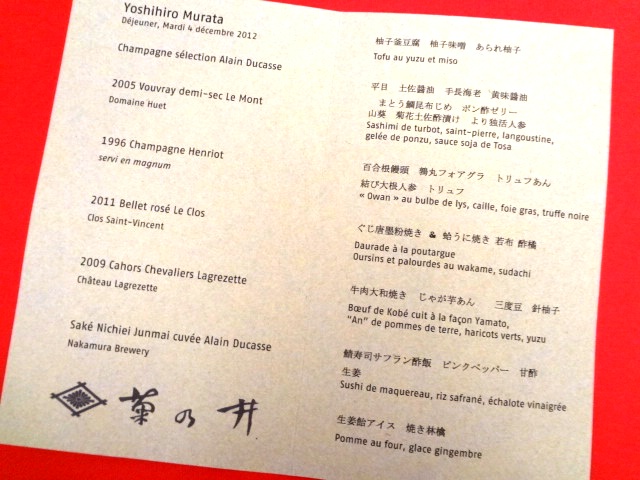 Yoshihiro Murata
Déjeuner, Mardi 4 décembre 2012
Champagne sélection Alain Ducasse
2005 Vouvray demi-sec Le Mont
Domaine Huet
1996 Champagne Henriot
servi en magnum
2011 Bellet rosé Le Clos
Clos Saint-Vincent
2009 Cahors Chevaliers Lagrezette
Château Lagrezette
Saké Nichiei Junmai cuvée Alain Ducasse
Nakamura Brewery
菊乃井
柚子釜豆腐 柚子味噌 あられ柚子
Tofu au yuzu et miso
平目 土佐醤油 手長海老 黄味醤油
まとう鯛昆布じめ ポン酢ゼリー
山葵 菊花土佐酢漬け より独活人参
Sashimi de turbot, saint-pierre, langoustine,
gelée de ponzu, sauce soja de Tosa
百合根饅頭 鶉丸フォアグラ トリュフあん
結び大根人参 トリュフ
« Owan » au bulbe de lys, caille, foie gras, truffe noire
ぐじ唐墨粉焼き & 蛤うに焼き 若布 酢橘
Daurade à la poutargue
Oursins et palourdes au wakame, sudachi
牛肉大和焼き じゃが芋あん 三度豆 針柚子
Bœuf de Kobé cuit à la façon Yamato,
"An" de pommes de terre, haricots verts, yuzu
鯖寿司サフラン酢飯 ピンクペッパー 甘酢
生姜
Sushi de maquereau, riz safrané, échalote vinaigrée
生姜飴アイス 焼き林檎
Pomme au four, glace gingembre